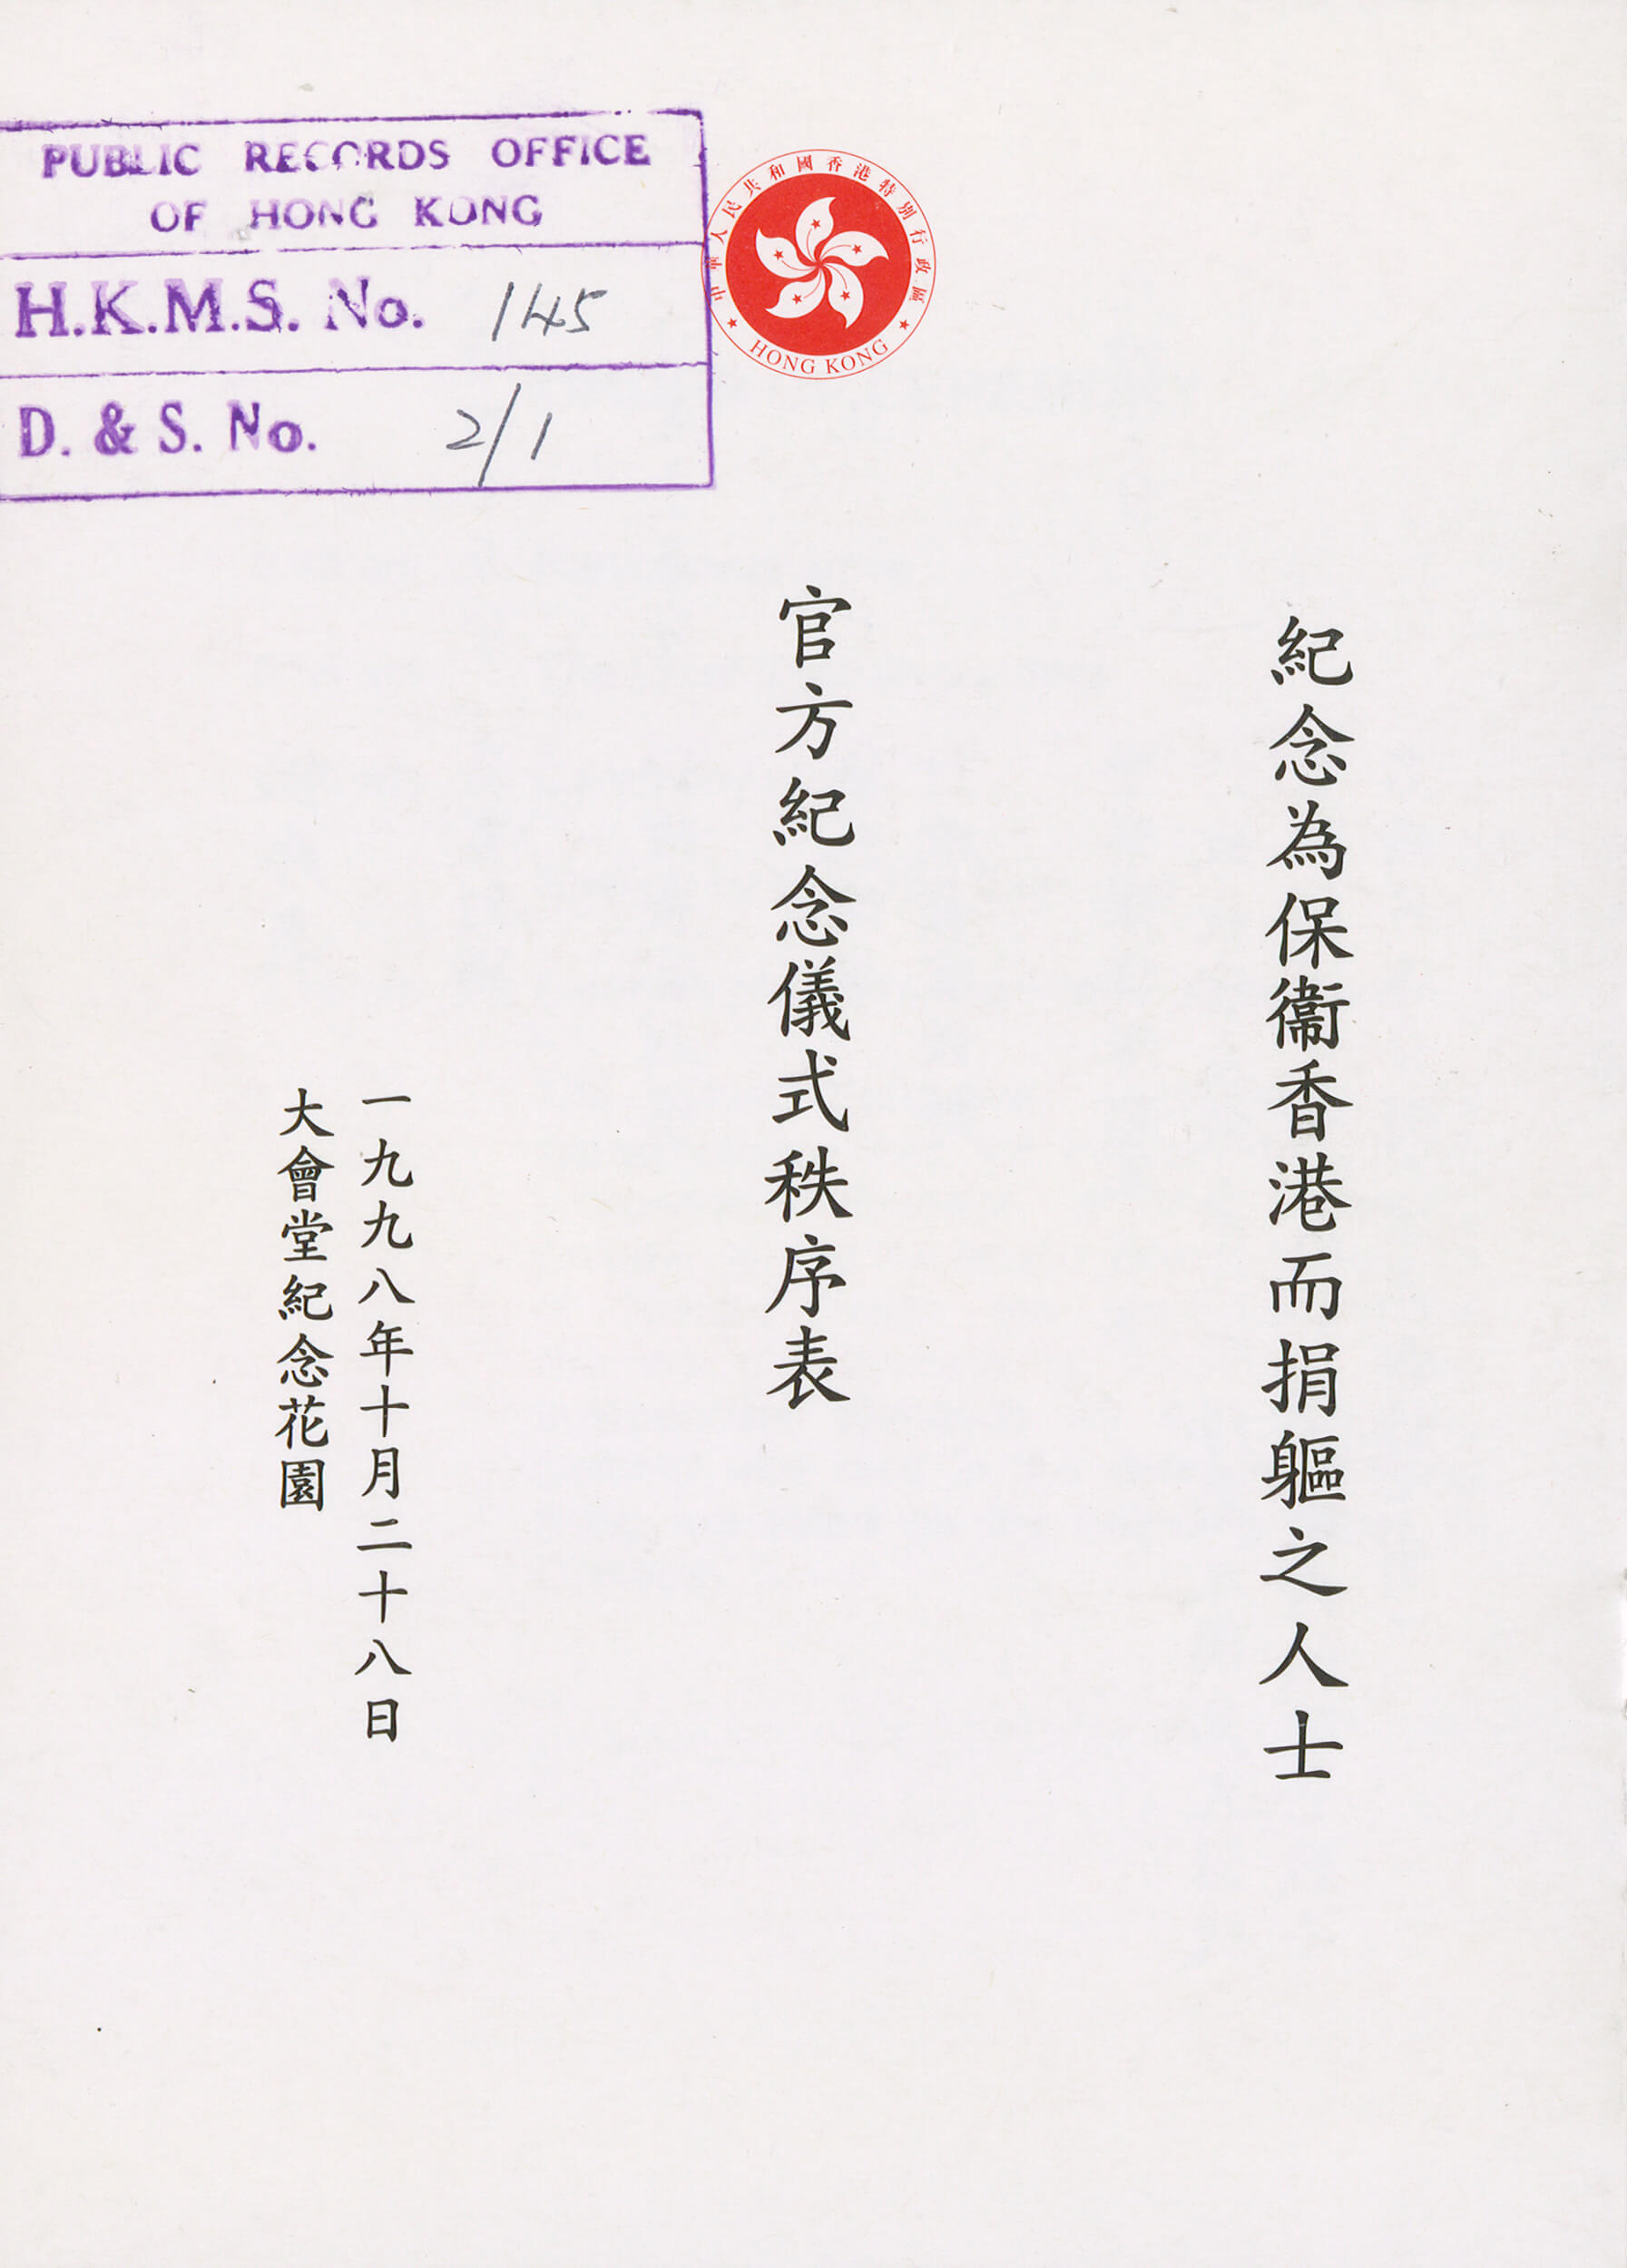 PUBLIC RECORDS OFFICE
OF HONG KONG
H.K.M.S. No. 145
D. & S. No. 2/1
中華人民共和國香港特別行政區
HONG KONG
紀念為保衞香港而捐軀之人士
官方紀念儀式秩序表
一九九八年十月二十八日
大會堂紀念花園